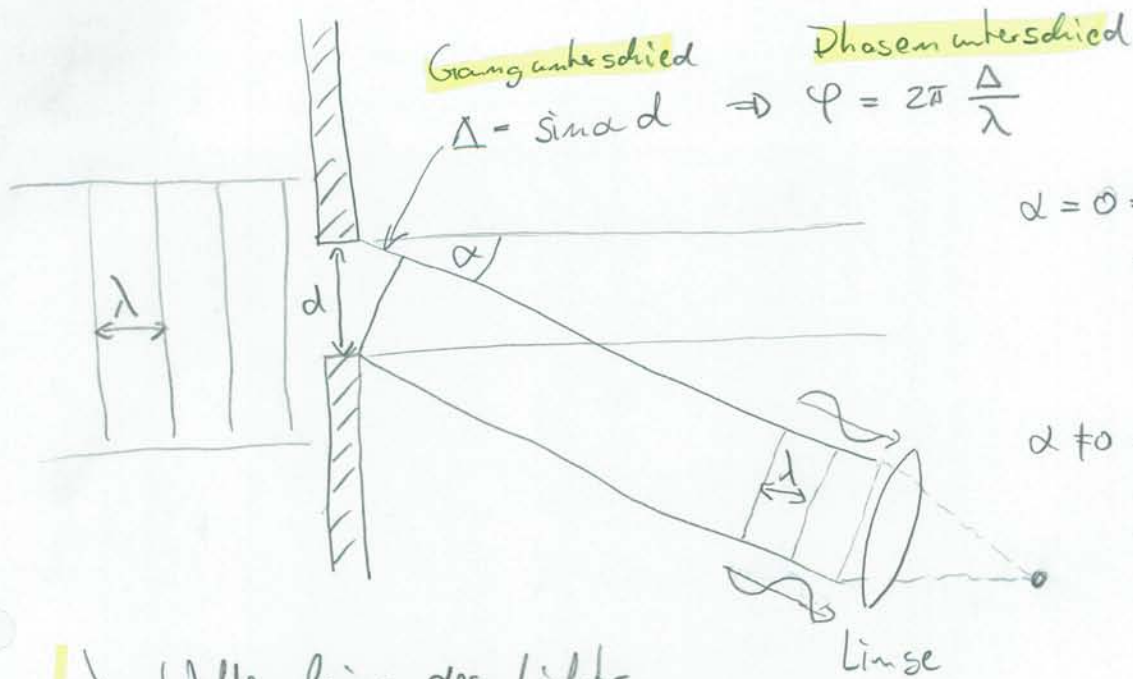 Gangunterschied Phasenunterschied
Δ = sinα d ⇒ φ = 2π Δ/λ
α = 0 =
α
λ
d
α ≠ 0
λ
Linse
λ